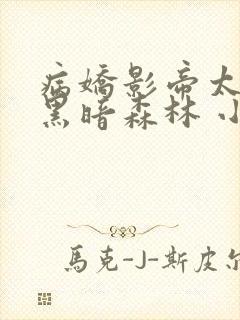 病嬌影帝太
黑暗森林 小
馬克-J-斯皮尔